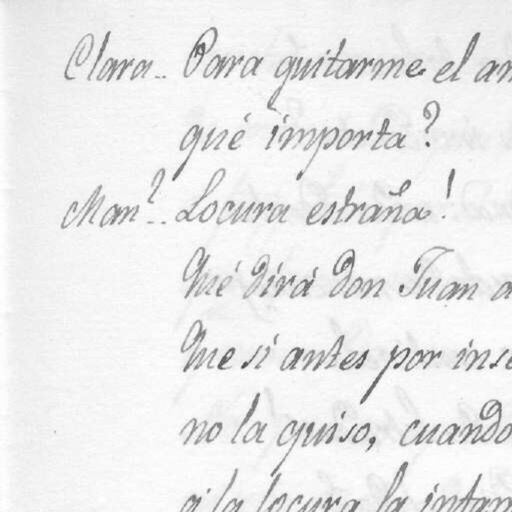 Clara.. Para quitarme el am
qué importa?
Man?.. Locura estraña!
Qué dirá don Juan a
Que si antes por inse
no la quiso, cuando
a la locura la infam